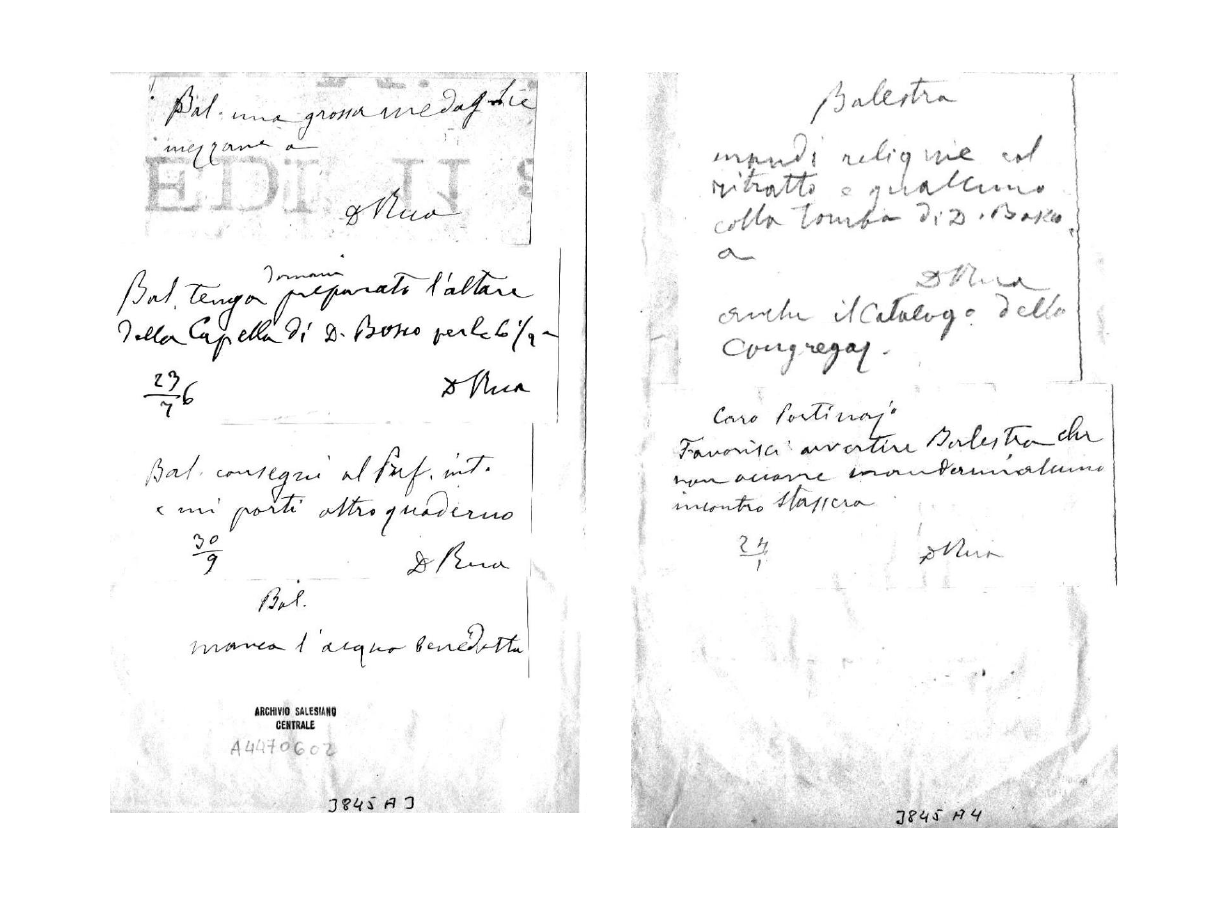 Bal. una grossa medaglie
mezzane a
EDI
D Rua
domani
Bal. tenga preparato l'altare
della Capella di D. Bosco per le 6 1/2
23
7 6
D Rua
Bal. consegni al Pref. int.
e mi porti altro quaderno
30
9
D Rua
Bal.
manca l'acqua benedetta
ARCHIVIO SALESIANO
CENTRALE
A4470602
3845 A 3
Balestra
mandi reliquie col
ritratto e qualcuno
colla tomba di D. Bosco,
a
D Rua
anche il Catalogo della
Congregaz.
Caro Portinajo
Favorisci avvertire Balestra che
non occorre mandarmi alcuno
incontro stassera
24
1
D Rua
3845 A 4